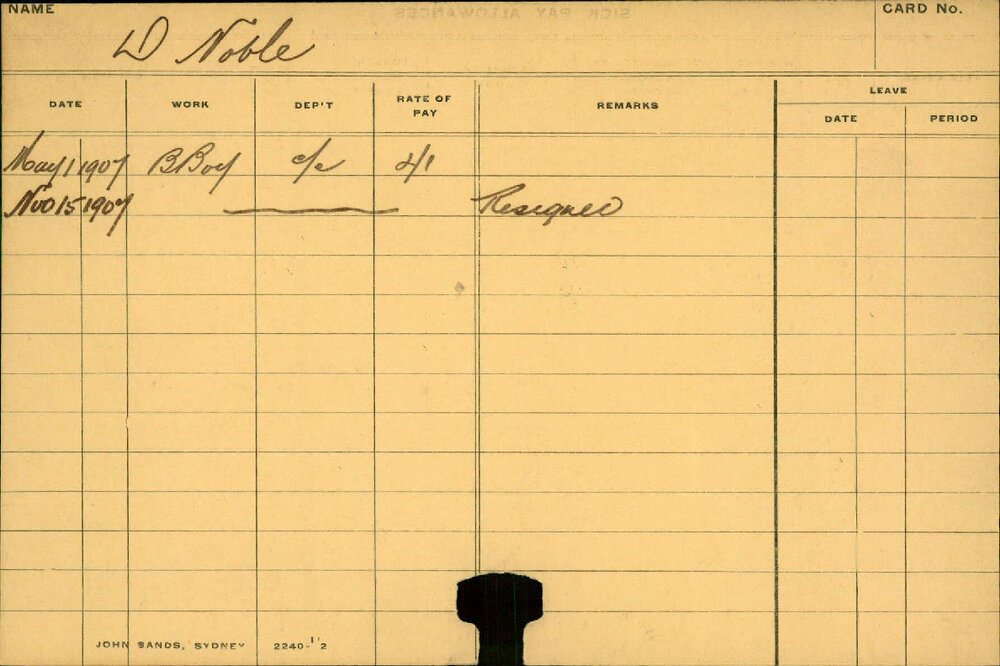 NAME
CARD No.
D Noble
DATE WORK DEP'T RATE OF PAY REMARKS LEAVE
DATE PERIOD
May 1 1907 B Boy c/e 2/1
Nov 15 1907 Resigned
JOHN SANDS, SYDNEY 2240-1'2